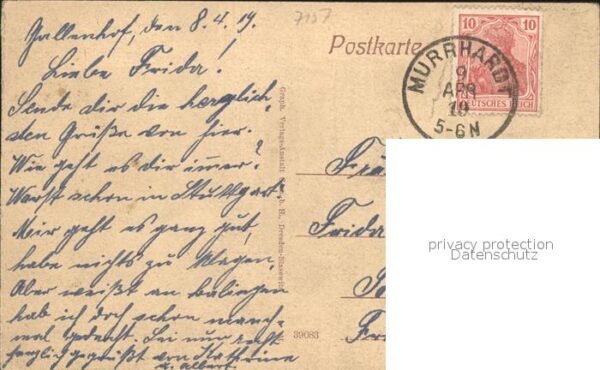 Gallenhof, den 8.4.19.
Liebe Frida!
Sende dir die herzlich-
sten Grüße von hier.
Wie geht es dir immer?
Warst schon in Stuttgart?
Mir geht es ganz gut,
habe nichts zu klagen.
Aber weißt an balingen
hab ich doch schon manch-
mal gedacht. Sei nun recht
herzlich gegrüßt von Kathrine
u. Albert.
7157
Postkarte
10 10
DEUTSCHES REICH
MURRHARDT
9
APR
19
5-6N
Graph. Verlags-Anstalt G. m. b. H., Dresden-Blasewitz
39083
Frida
privacy protection
Datenschutz